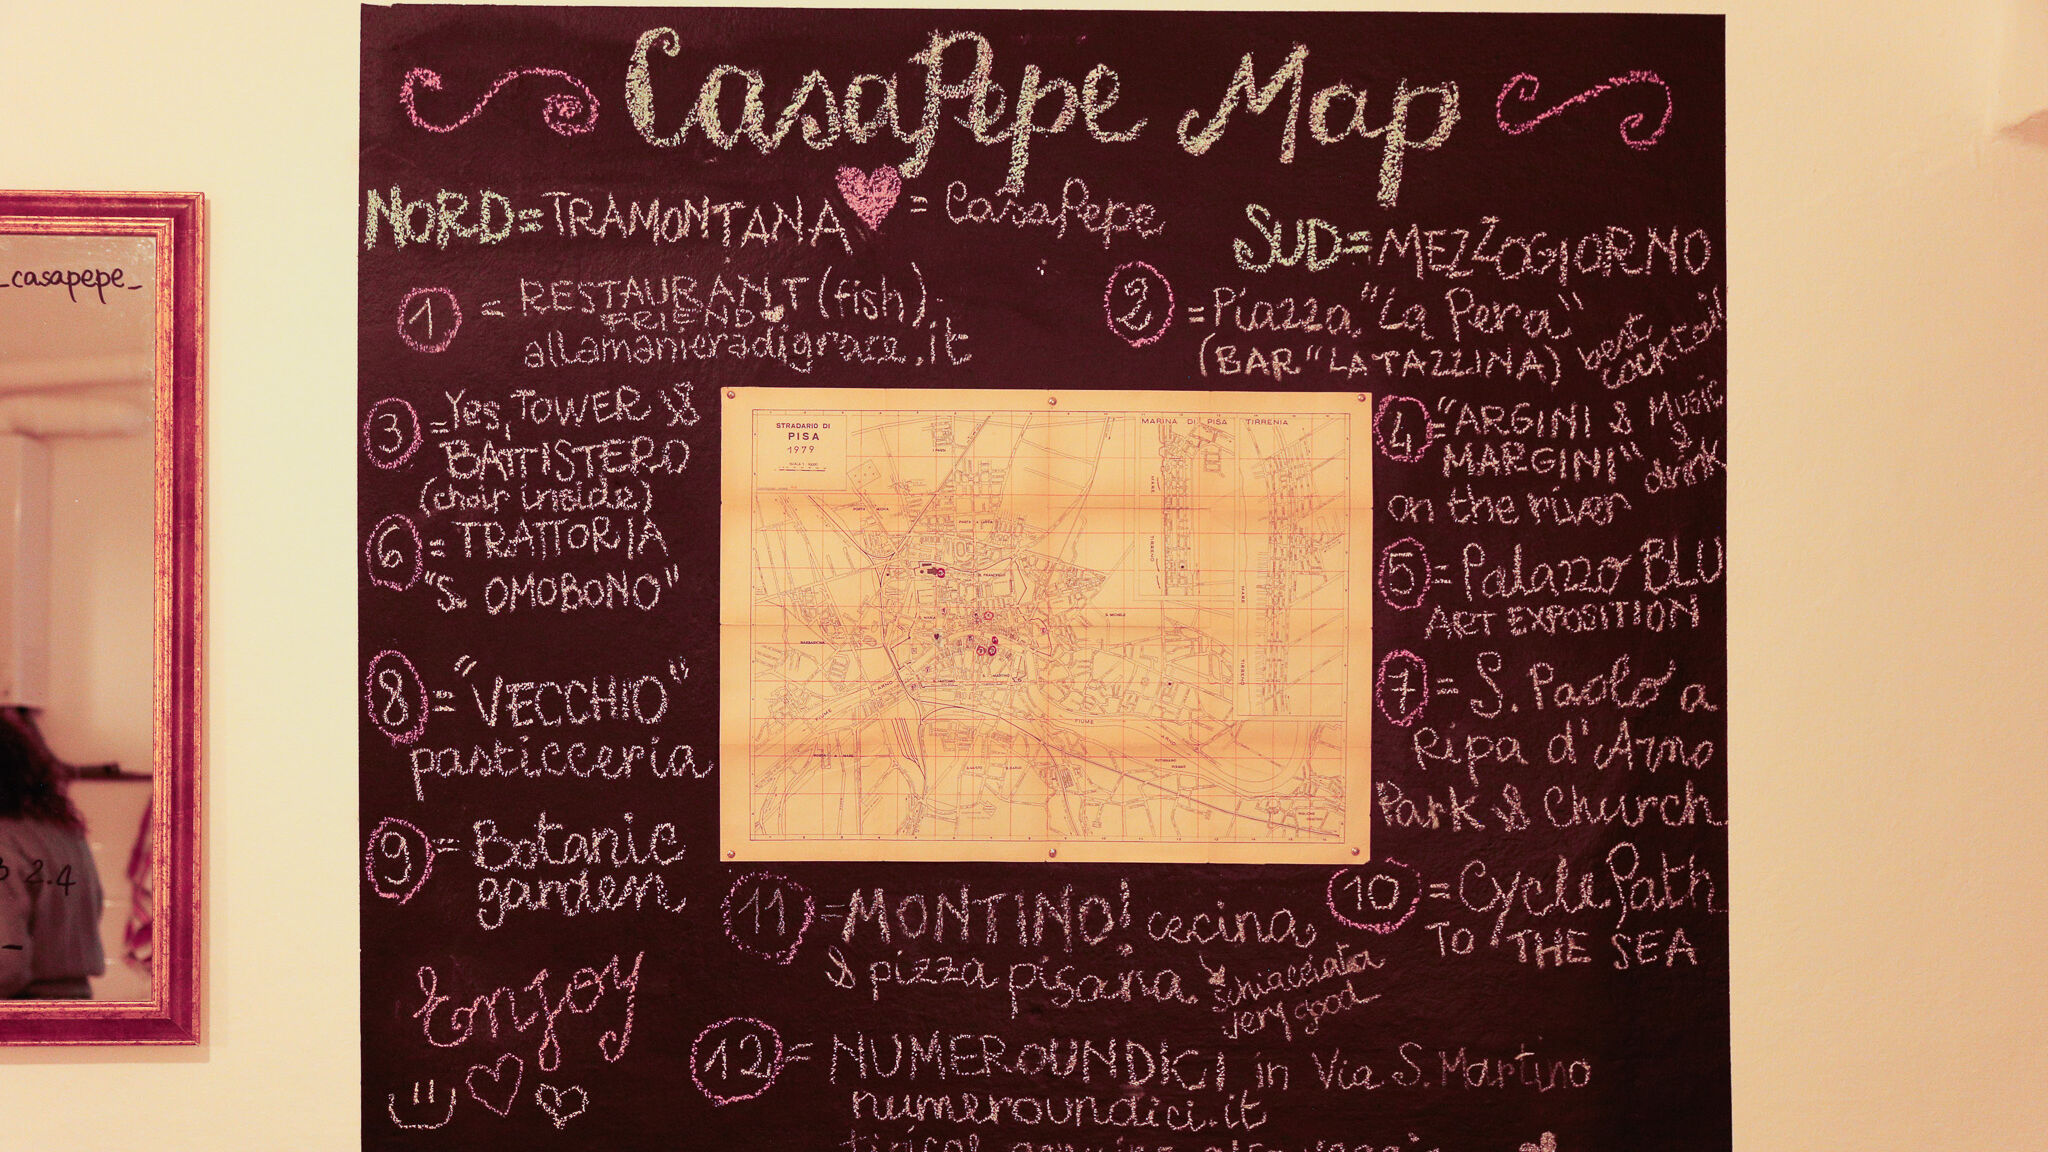 CasaPepe Map
NORD=TRAMONTANA
= CasaPepe
SUD=MEZZOGIORNO
1 = RESTAURANT (fish)
FRIEND
allamanieradigrace.it
2 = Piazza "La Pera"
(BAR "LA TAZZINA) best
cocktail
3 = Yes, TOWER &
BATTISTERO
(choir inside)
4 = "ARGINI & Music
MARGINI" &
on the river drink
6 = TRATTORIA
"S. OMOBONO"
5 = Palazzo BLU
ART EXPOSITION
8 = "VECCHIO"
pasticceria
7 = S. Paolo a
Ripa d'Arno
Park & Church
9 = Botanic
garden
10 = Cycle Path
TO THE SEA
11 = MONTINO! cecina
& pizza pisana
schiacciata
very good
Enjoy
12 = NUMEROUNDICI in Via S. Martino
numeroundici.it
STRADARIO DI
PISA
1979
MARINA DI PISA TIRRENIA
FIUME
ARNO
_casapepe_
2.4